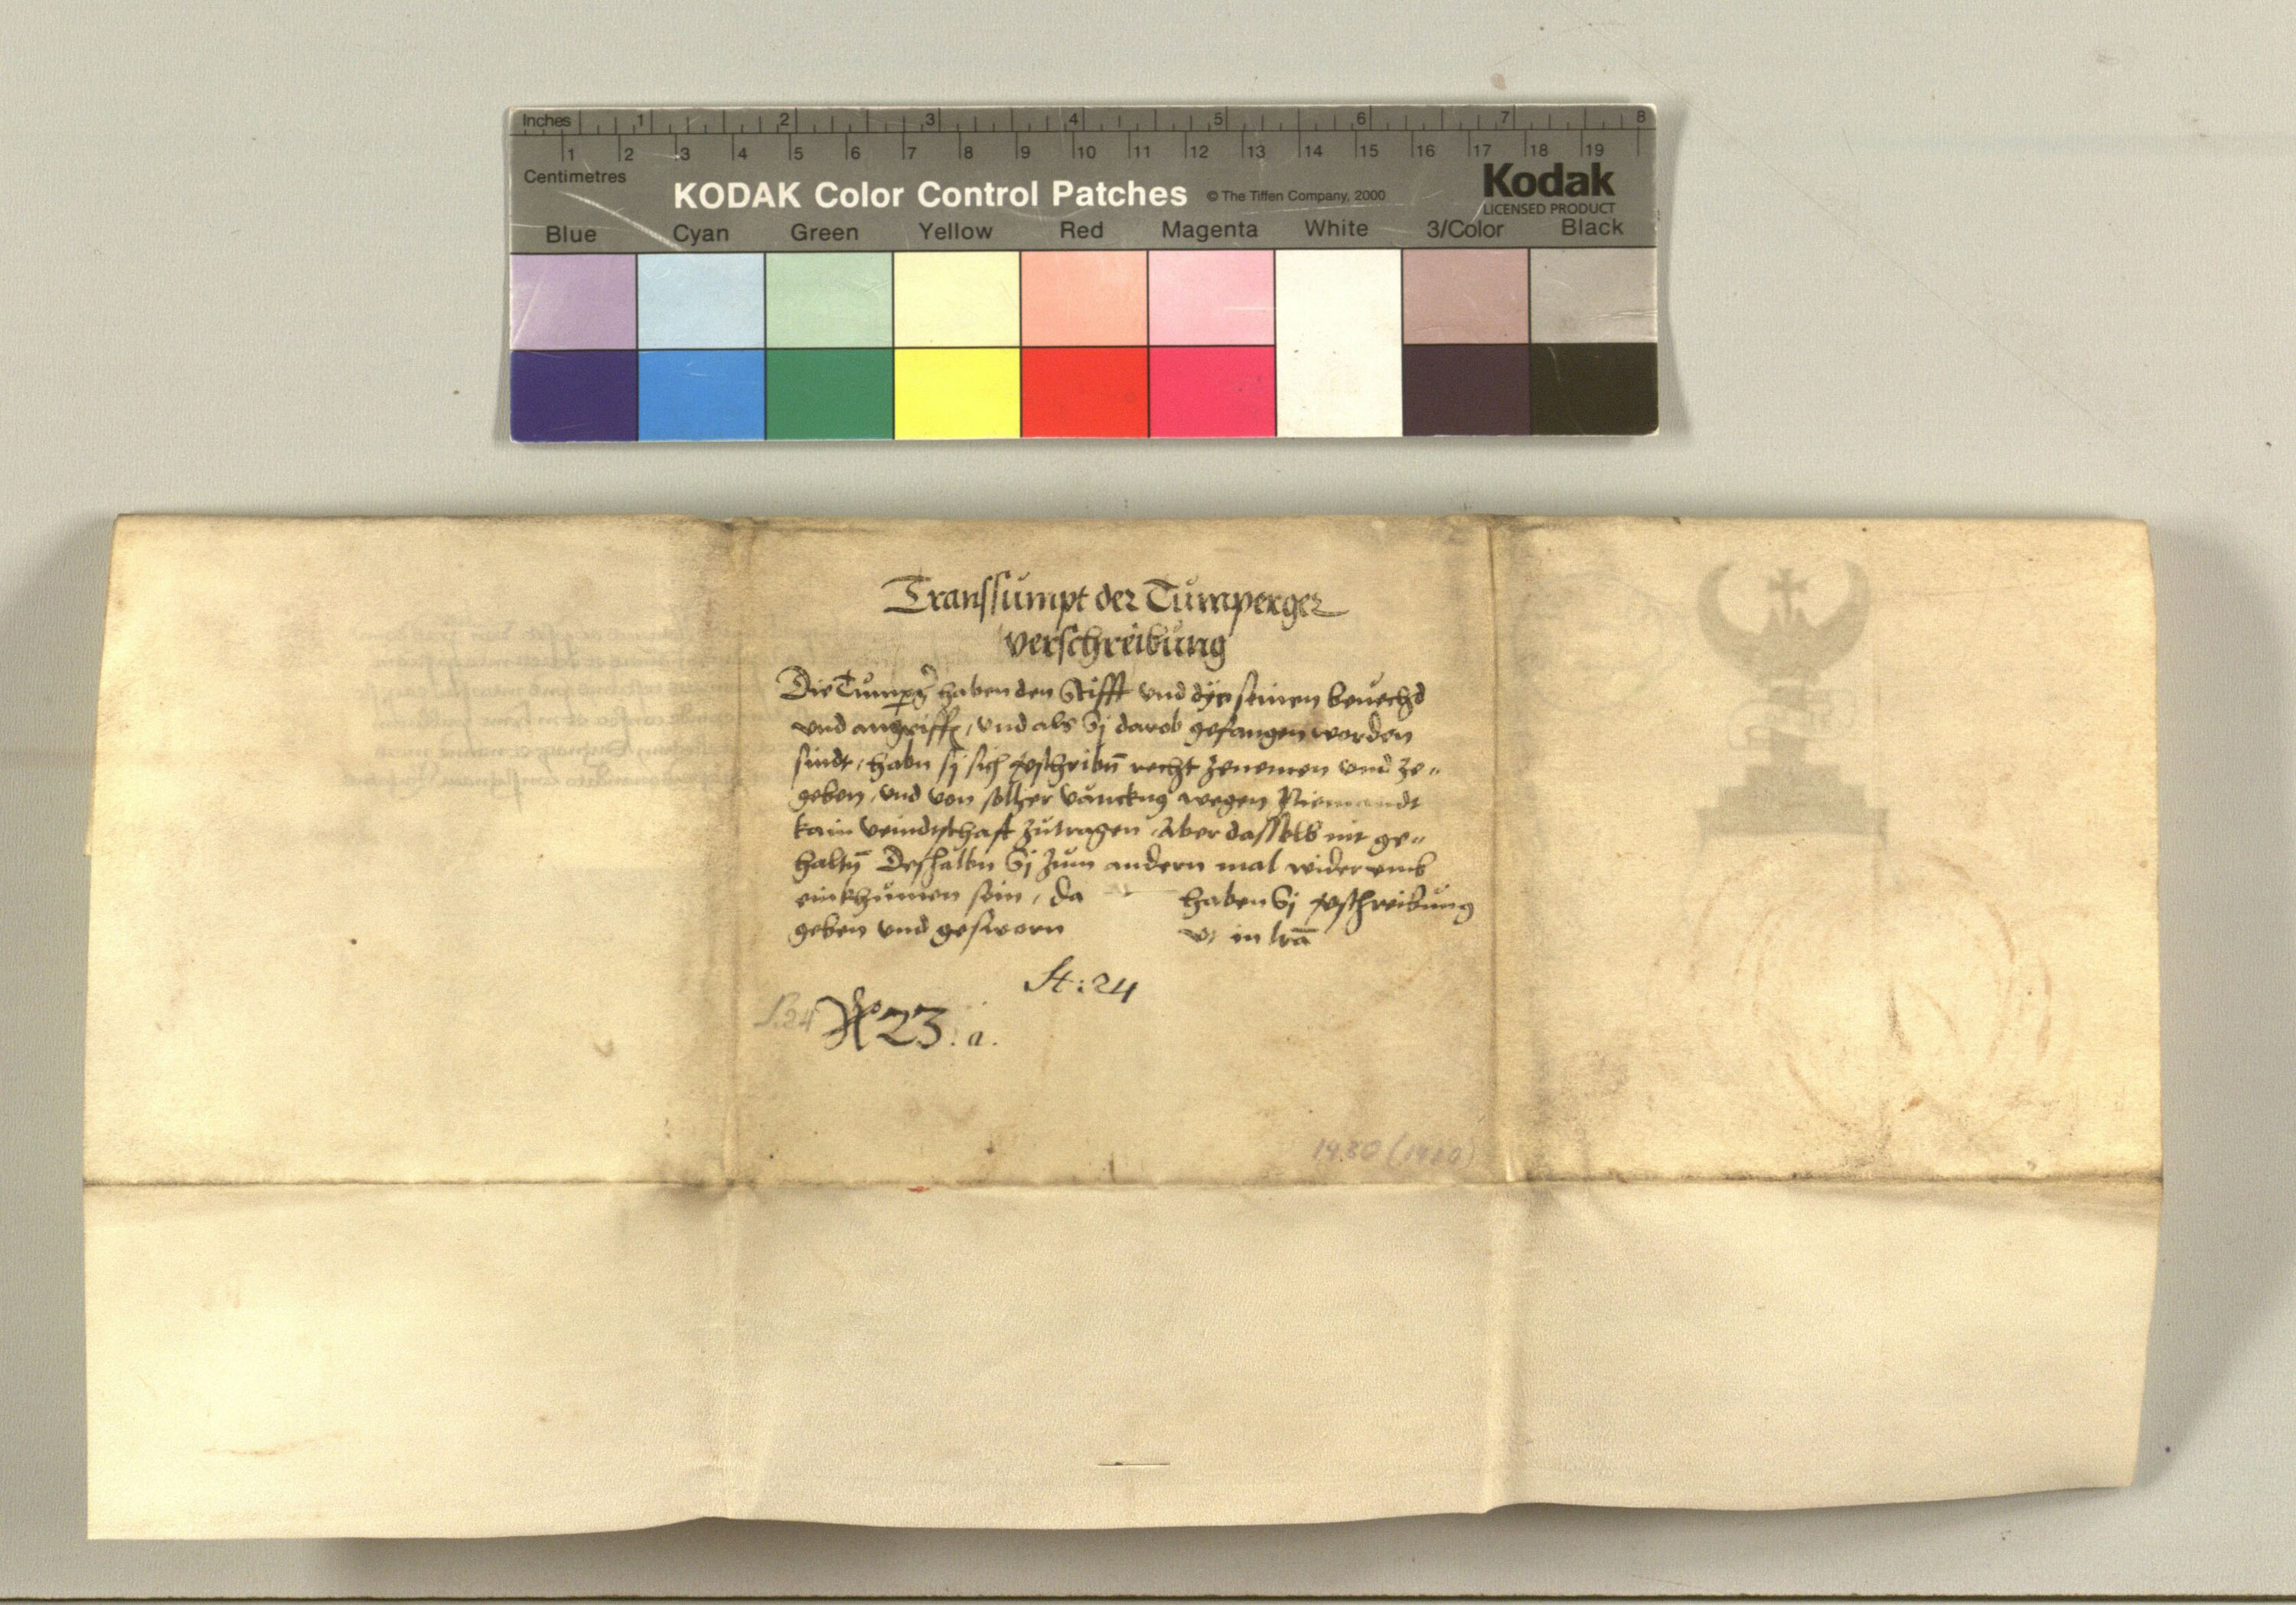 Inches 1 2 3 4 5 6 7 8
1 2 3 4 5 6 7 8 9 10 11 12 13 14 15 16 17 18 19
Centimetres
KODAK Color Control Patches © The Tiffen Company, 2000
Kodak
LICENSED PRODUCT
Blue Cyan Green Yellow Red Magenta White 3/Color Black
Transsumpt der Tumperger
verschreibung
Die haben den Stifft vnd
vnd angriff, vnd als Sy darob gefangen worden
sindt, habn sy sich recht zenemen vnd ze"
geben, vnd von sollher vanckng wegen Niemandt
kain veindtschaft zutragen. Aber dasselb nit ge"
haltn̄ Deshalbn Sy zum andern mal widerumb
einkhumen sein, da haben Sy verschreibung
geben vnd gesworn in
St: 24
S.24 No 23. a.
1480 (1460)